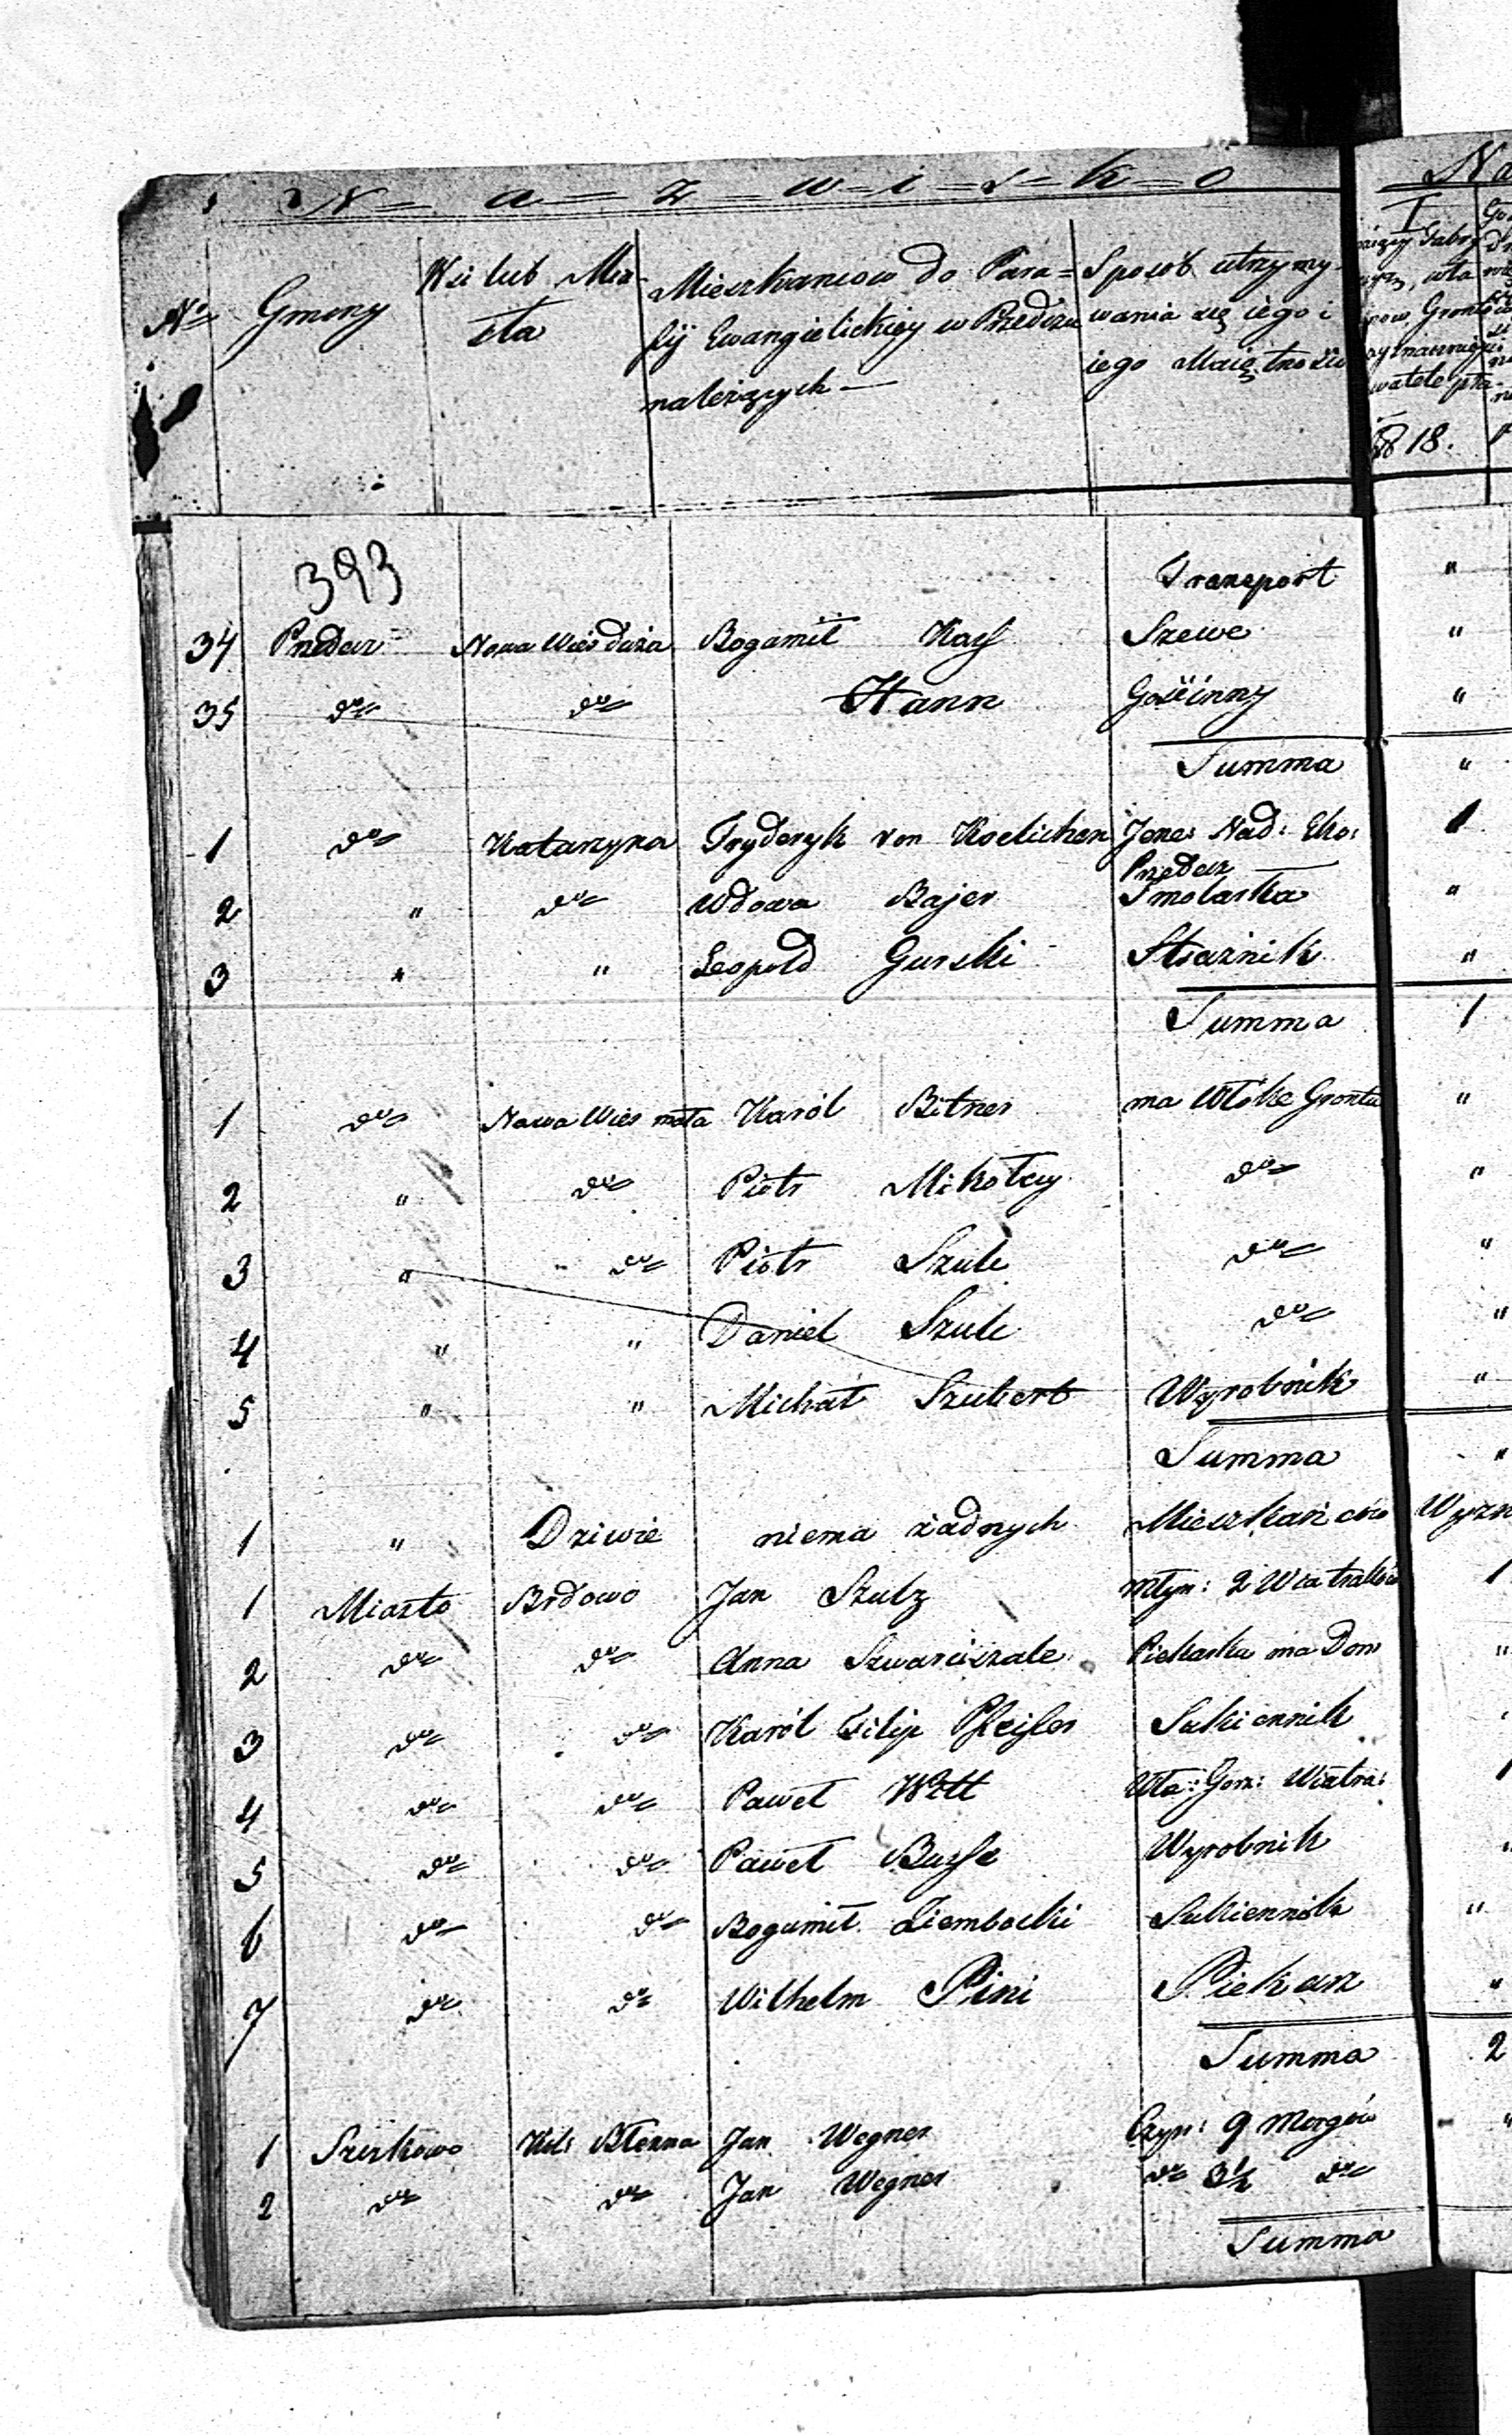 N = a = z = w = i = s = k = o
No Gminy Wsi lub Mia- sta Mieszkancow do Para= fij Ewangielickiey w Przedczu należących — Sposób utrzymy- wania się iego i iego Maiętności
Na
I
18 18.
393
Transport "
34 Przedecz Nowa Wieś duża Bogumił Kass Szewc "
35 dto dto Hann Gościnny "
Summa "
1 dto Katarzyna Fryderyk von Koelichen Jene: Nad: Eko: Przedecz 1
2 " dto Wdowa Bajer Smolarka "
3 " " Leopold Gurski Strażnik "
Summa 1
1 dto Nowa Wies mała Karól Bitner ma Włókę Grontu "
2 " dto Piotr Mikołay dto "
3 " dto Piotr Szulc dto "
4 " " Daniel Szulc dto "
5 " " Michał Szubert Wyrobnik "
Summa "
1 " Dziwie niema żadnych Mieszkańców Wyzn
1 Miasto Brdowo Jan Szulz Młyn: 2 Wiatraków 1
2 dto dto Anna Piekarka ma Dom "
3 dto dto Karól Filip Pfeifer Sukiennik
4 dto dto Paweł Witt Wła: Gorz: Wiatra: 1
5 dto dto Paweł Busse Wyrobnik
6 dto dto Bogumił Ziembocki Sukiennik "
7 dto dto Wilhelm Pini Piekarz "
Summa 2
1 Szczkowo Kol: Błenna Jan Wegner Czyn: 9 Morgów "
2 dto dto Jan Wegner dto 3½ dto
Summa